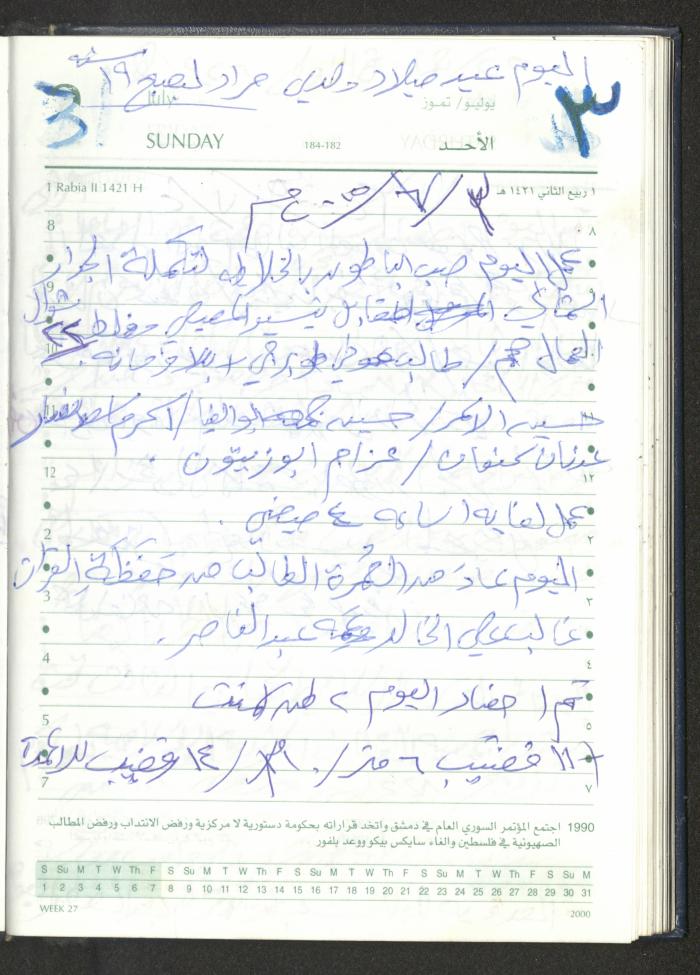 اليوم عيد ميلاد ولدي مراد ليصبح ١٩ سنة
3 July يوليو/ تموز ٣
SUNDAY 184-182 الأحد
1 Rabia II 1421 H ١ ربيع الثاني ١٤٢١ هـ
8 ٨
عمل اليوم صب الباطون بالخلاطه لتكملة الجدار
9 ٩
الشمالي المقابل
10 العمال هم / طالب
11 ١١
حسين الأحمر / حسين ابو الفيا / اكرم
عدنان كنعان / عزام ابو زيتون .
12 ١٢
عمل لغاية الساعه ٤ صيفي .
2 ٢
اليوم عاد من العُمرة الطالب من حَفَظَةِ القرآن
3 ٣
غالب علي الخالد عبد القاصر .
4 ٤
تم احضار اليوم ٢ طن اسمنت
5 ٥
١١ قضيب ٦ متر / ١٤ قضيب للأعمدة
7 ٧
1990 اجتمع المؤتمر السوري العام في دمشق واتخد قراراته بحكومة دستورية لا مركزية ورفض الانتداب ورفض المطالب
الصهيونية في فلسطين والغاء سايكس بيكو ووعد بلفور
S Su M T W Th F S Su M T W Th F S Su M T W Th F S Su M T W Th F S Su M
1 2 3 4 5 6 7 8 9 10 11 12 13 14 15 16 17 18 19 20 21 22 23 24 25 26 27 28 29 30 31
WEEK 27 2000